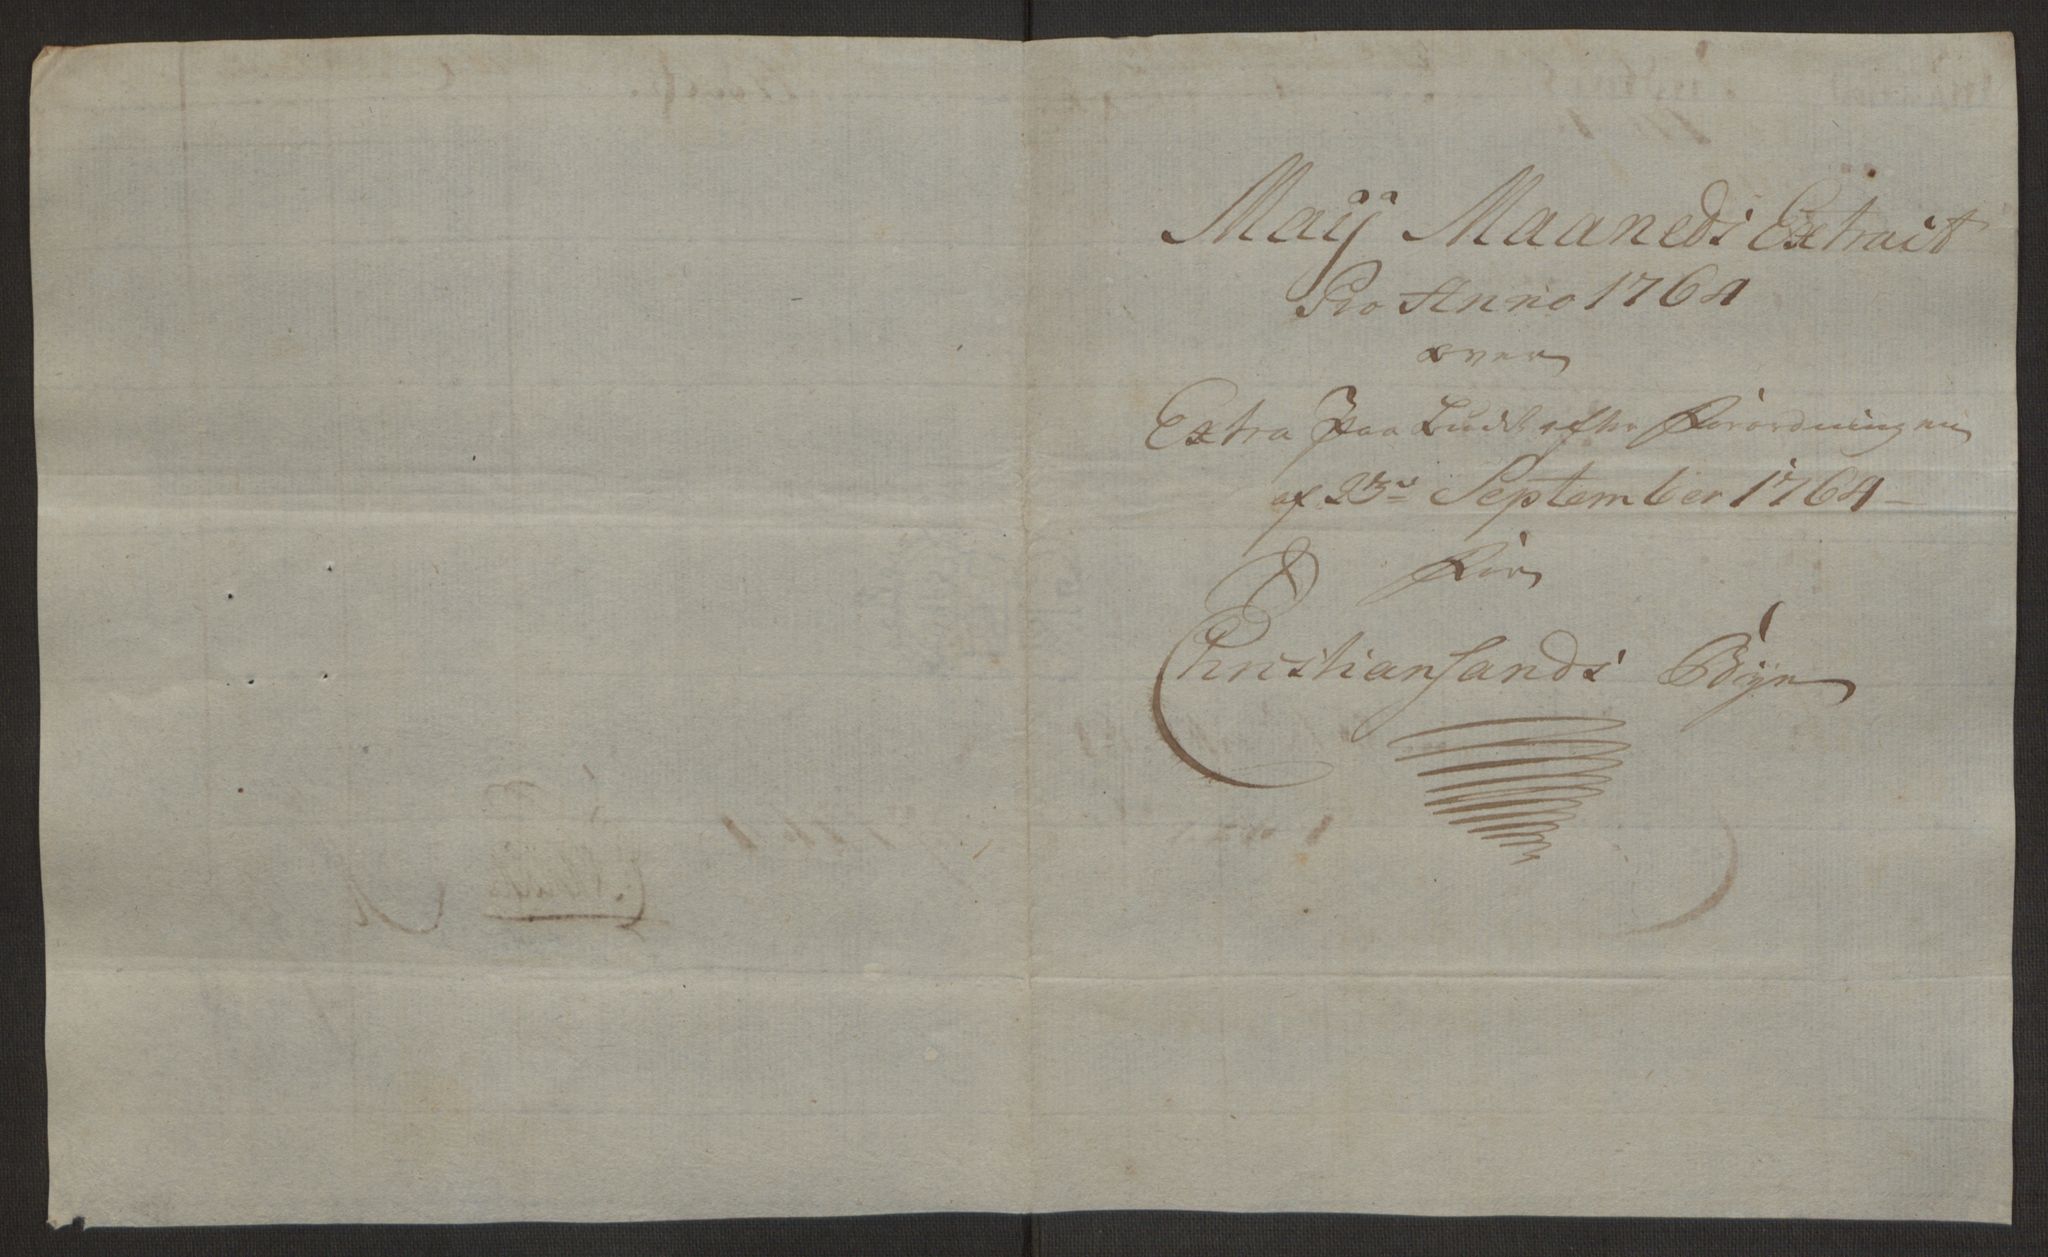 Maÿ Maaneds Extract
Pro Anno 1764
over
Extra Paa efter Forordningen
af 23de September 1764
for
Christiansands Bÿe